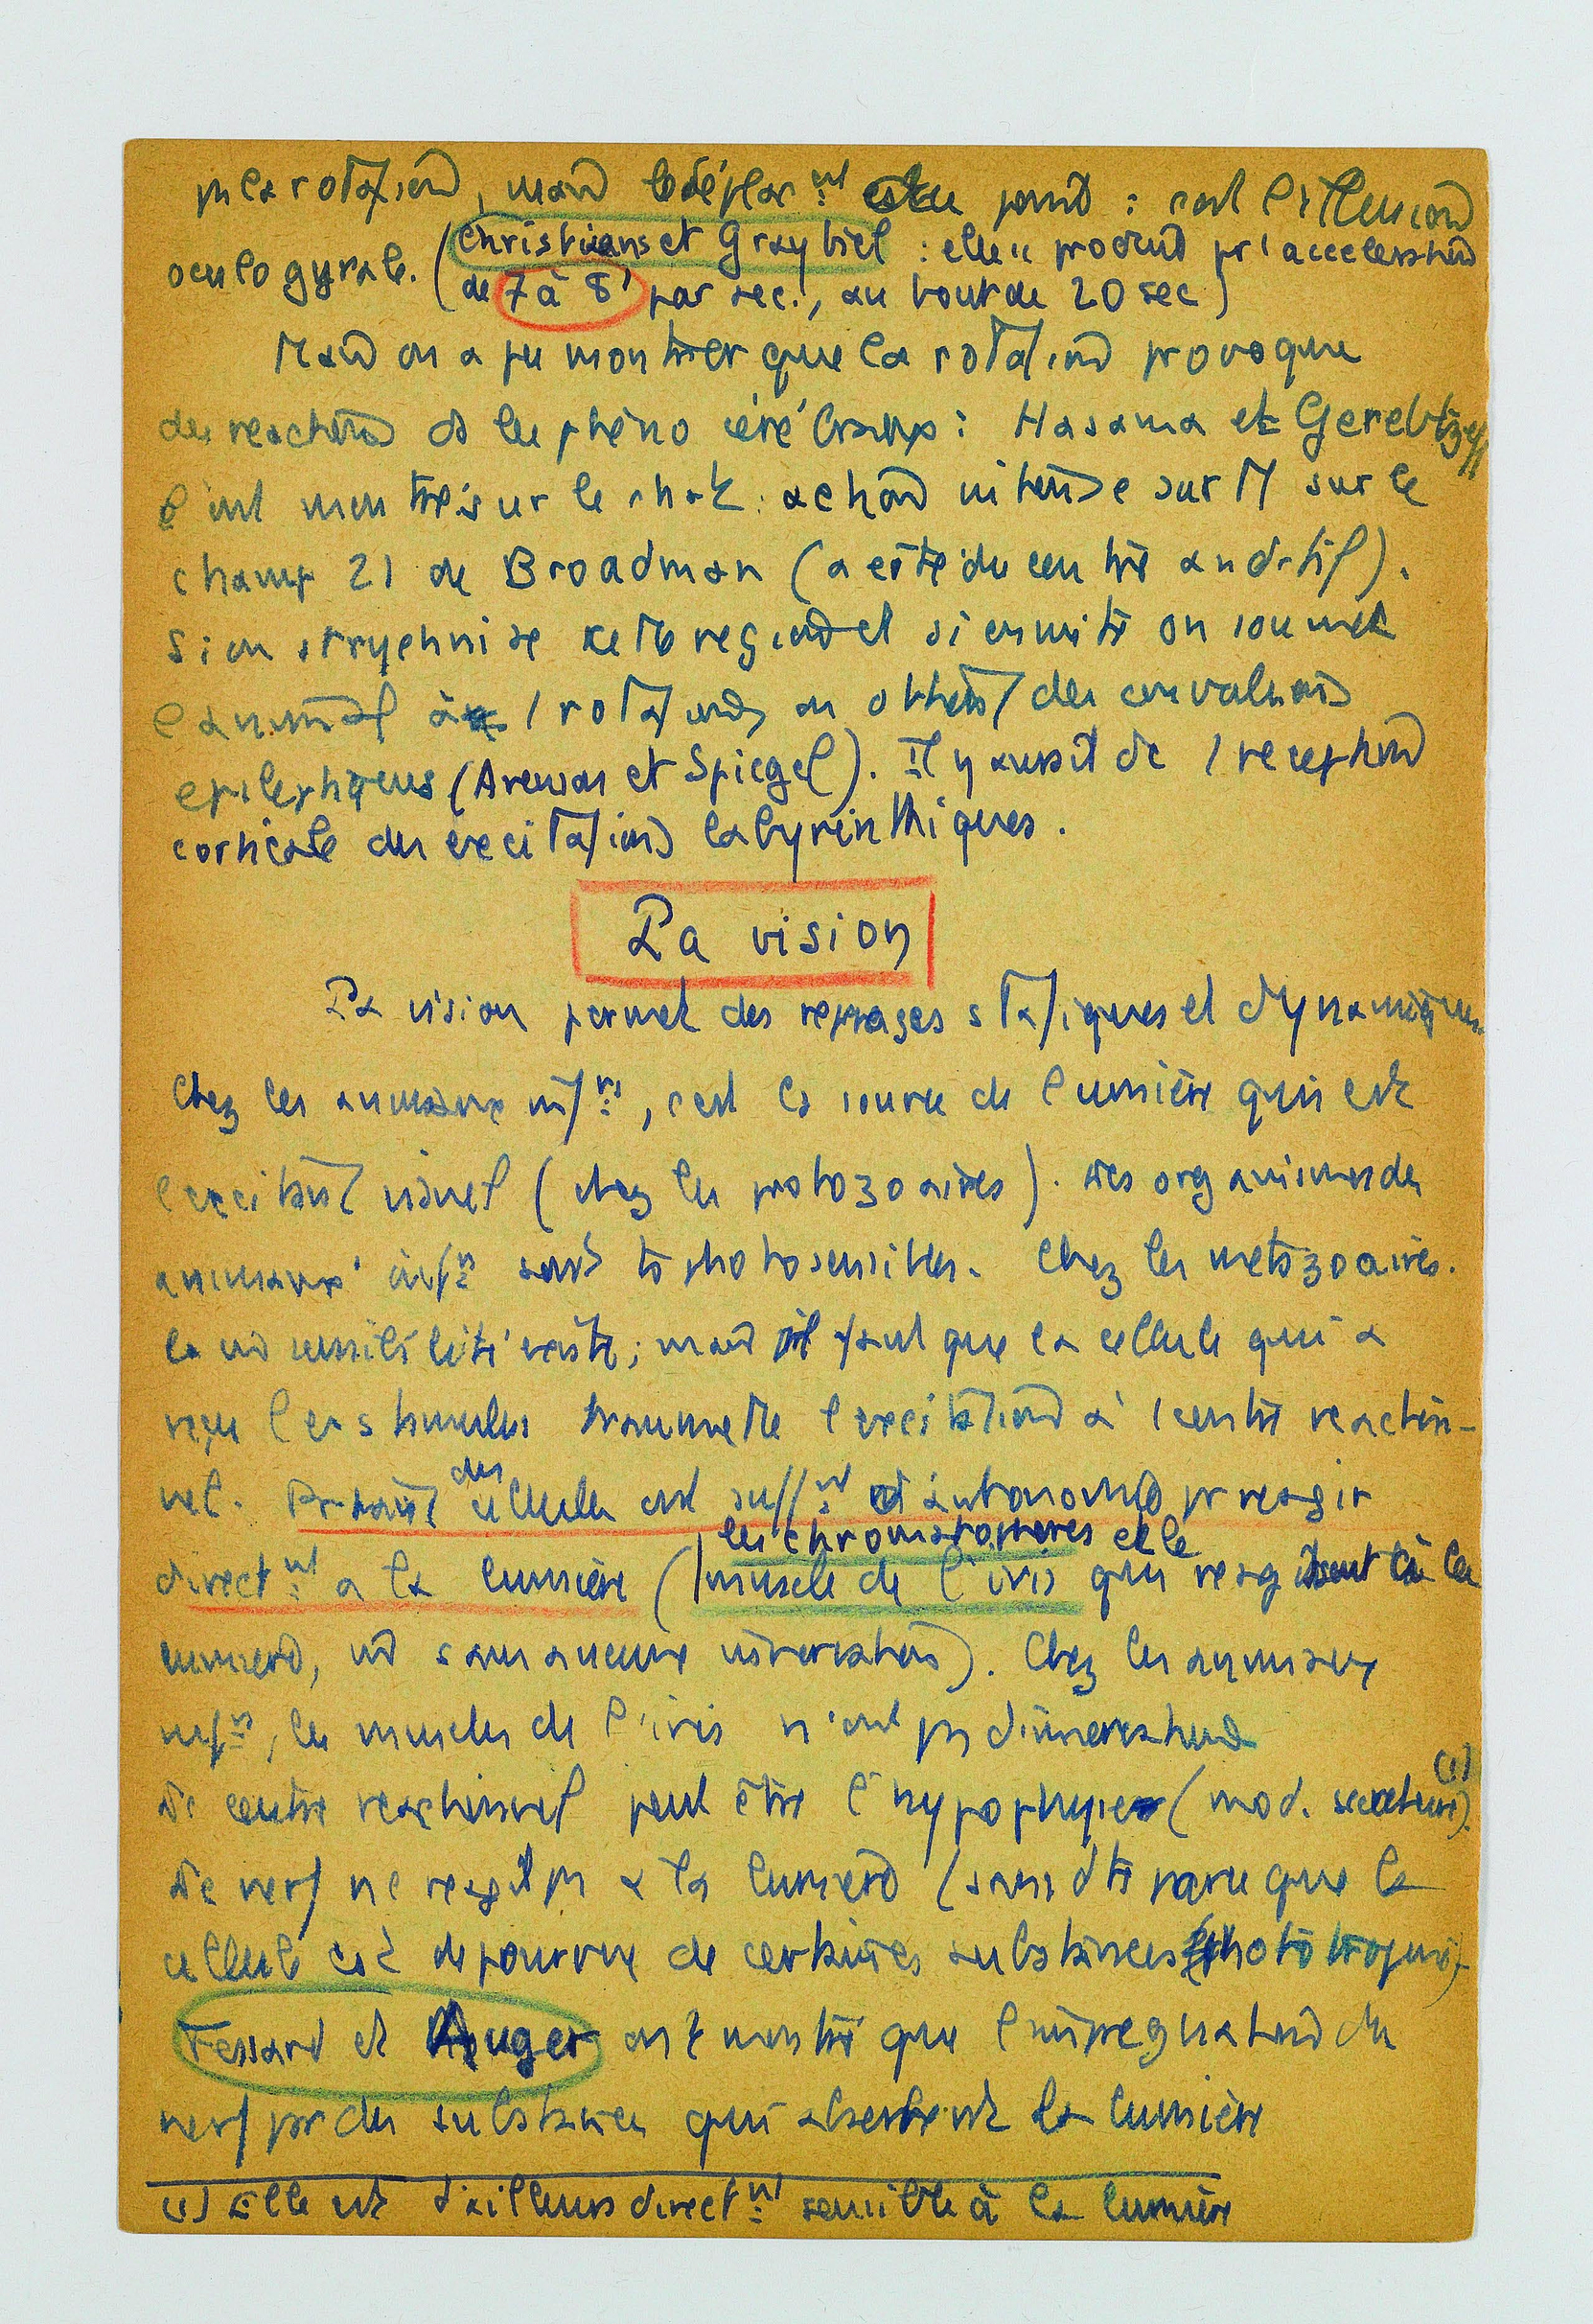 pas la rotation, mais le déplac.nt du point : c'est l'illusion
oculogyrale. (Christians et Graybiel : elle se produit pr 1 acceleration
(de 7 à 8° par sec., au bout de 20 sec)
Mais on a pu montrer que la rotation provoque
des reactions ds les phéno cérébraux : Hasama et Gerebtzeff
l'ont montré sur le chat : action intense surtt sur le
champ 21 de Broadman (a côté du centre auditif).
Si on strychnise cette region et si ensuite on soumet
l'animal à 1 rotation, on obtient des convulsions
epileptiques (Arenson et Spiegel). Il y aurait dc 1 reception
corticale des excitations labyrinthiques.
La vision
La vision permet des reperages statiques et dynamiques.
Chez les animaux inf.rs, c'est la source de lumière qui est
l'excitant visuel (chez les protozoaires). Les organismes des
animaux inf.rs sont ts photosensibles. Chez les metazoaires.
la sensibilité existe; mais il faut que la cellule qui a
reçu le stimulus transmette l'excitation à 1 centre reaction-
nel. Prtant des cellules ont suff.nt d'autonomie pr reagir
direct.nt a la lumière (les chromatophores et le
muscle de l'iris qui reagissent à la
lumiere, sans aucune innervation). Chez les animaux
inf.rs, les muscles de l'iris n'ont pas d'innervation
Le centre reactionnel peut être l'hypophyse (mod. secretoire) (1)
Le nerf ne reagit pas à la lumiere (sans dte parce que la
cellule est depourvue de certaines substances phototropiques)
Fessard et Auger ont montré que l'impregnation du
nerf par des substances qui absorbent la lumière
(1) Elle est d'ailleurs direct.nt sensible à la lumière